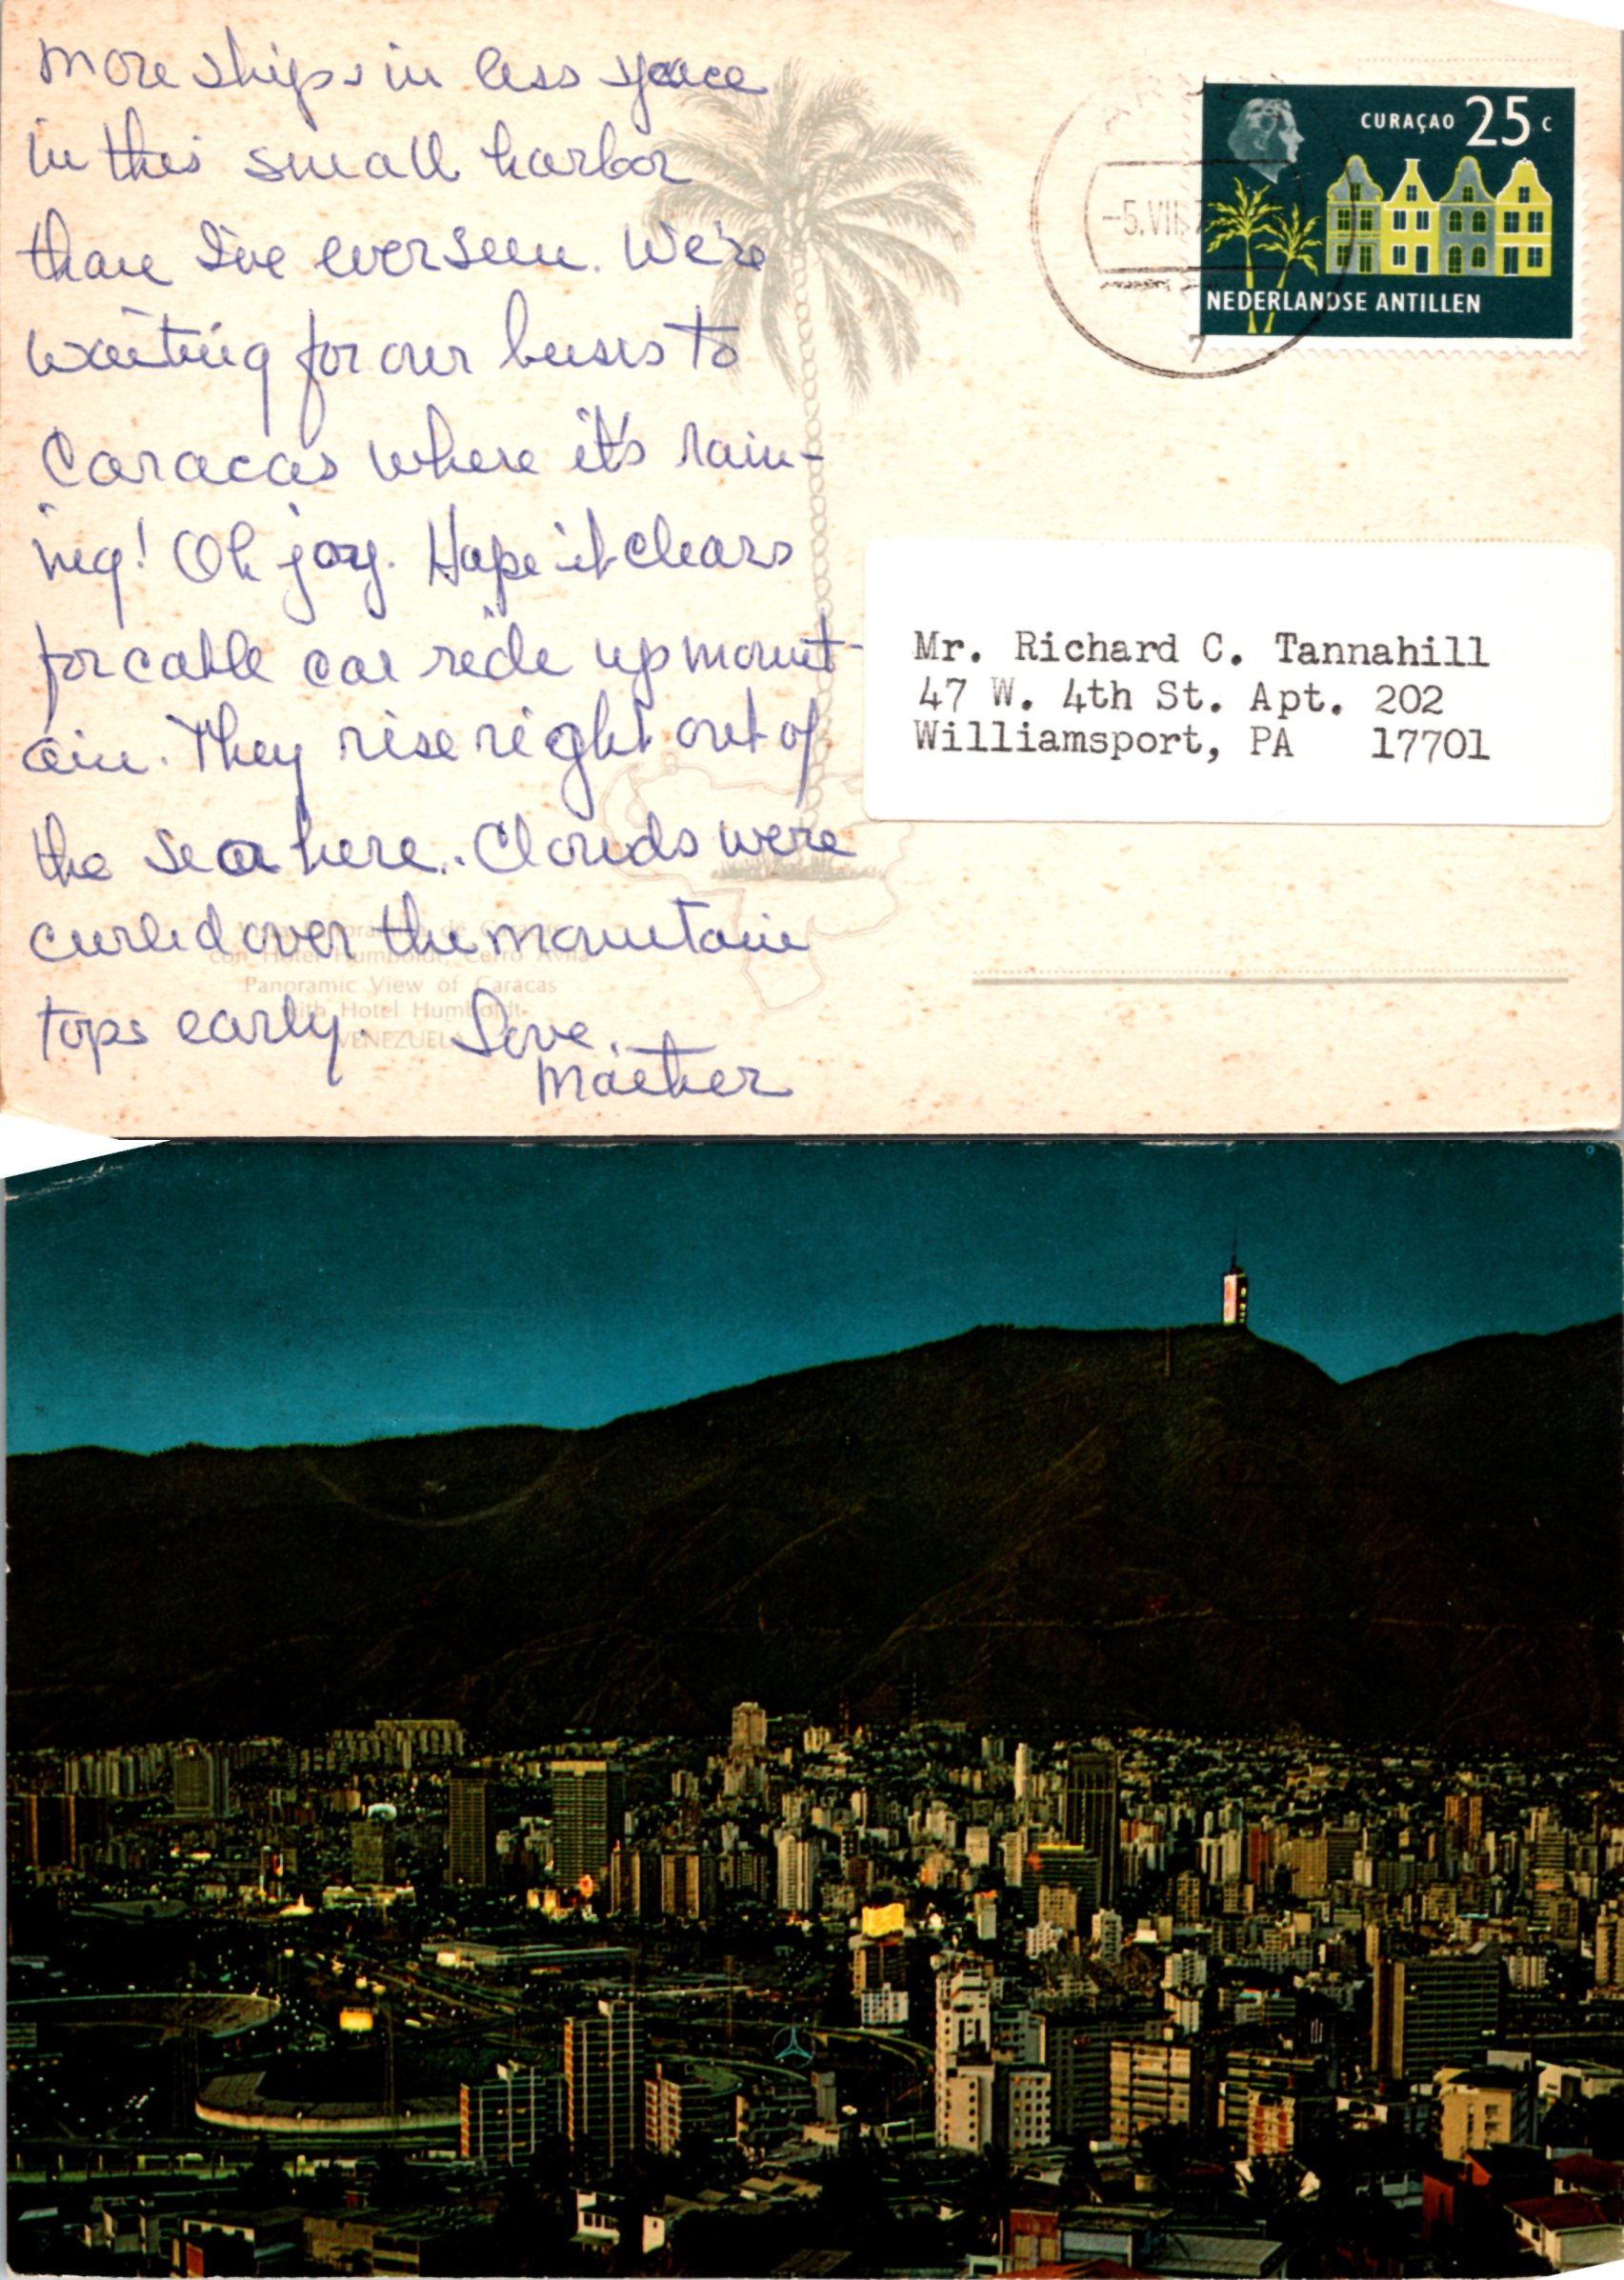 more ships in less space
in this small harbor
than I've ever seen. We're
waiting for our buses to
Caracas where it's rain-
ing! Oh joy. Hope it clears
for cable car ride up mount-
ain. They rise right out of
the sea here. Clouds were
curled over the mountain
tops early. Love,
Mother
CURAÇAO 25 C
NEDERLANDSE ANTILLEN
-5.VII.7
7
Mr. Richard C. Tannahill
47 W. 4th St. Apt. 202
Williamsport, PA 17701
con Hotel Humboldt, Cerro Avila
Panoramic View of Caracas
with Hotel Humboldt.
VENEZUELA